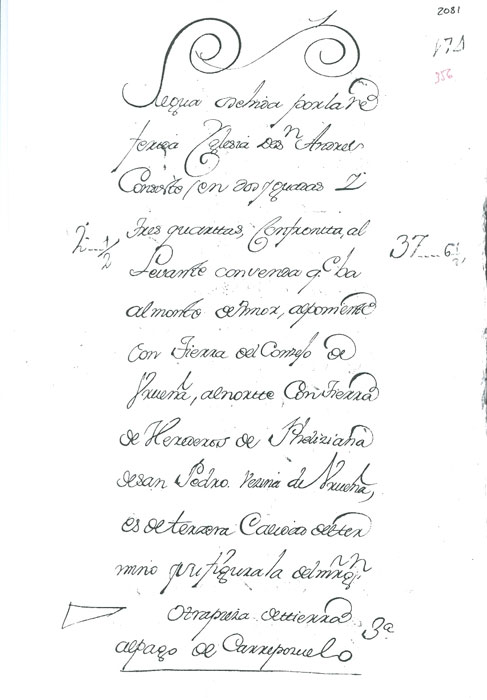 2081
171
356
Segua vezina por la re
ferida Yglesia de Sn Andres
Consiste en dos yguadas Y
tres quarttas, Confrontta, al
2 1/2
37...6 1/2
Levante con venda qe ba
al monte de Tmor, al poniente
Con Tierra del Conzejo de
Vrueña, al nortte Con Tierra
de Herederos de Pheliziana
de san Pedro. Vezina de Vrueña,
es de terzera Calidad del ter
mino fugura la del margn
Otra pieza de ttierra
3a
al pago de Carreporuelo